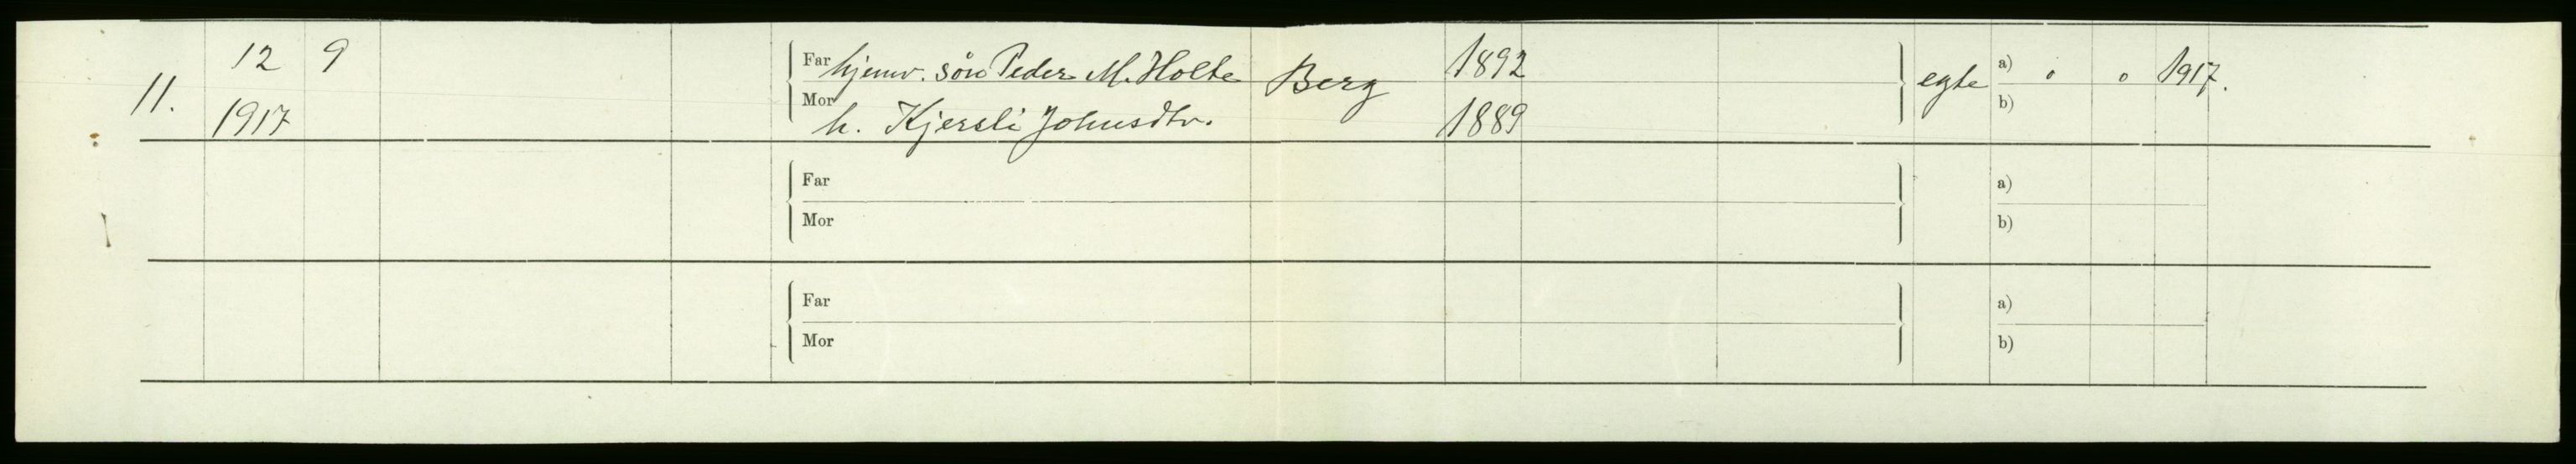 11.
12 9
1917
Far hjemv. søn Peder M. Holte Berg 1892 egte a) " " 1917.
Mor h. Kjersti Johnsdtr. 1889 b)
Far a)
Mor b)
Far a)
Mor b)